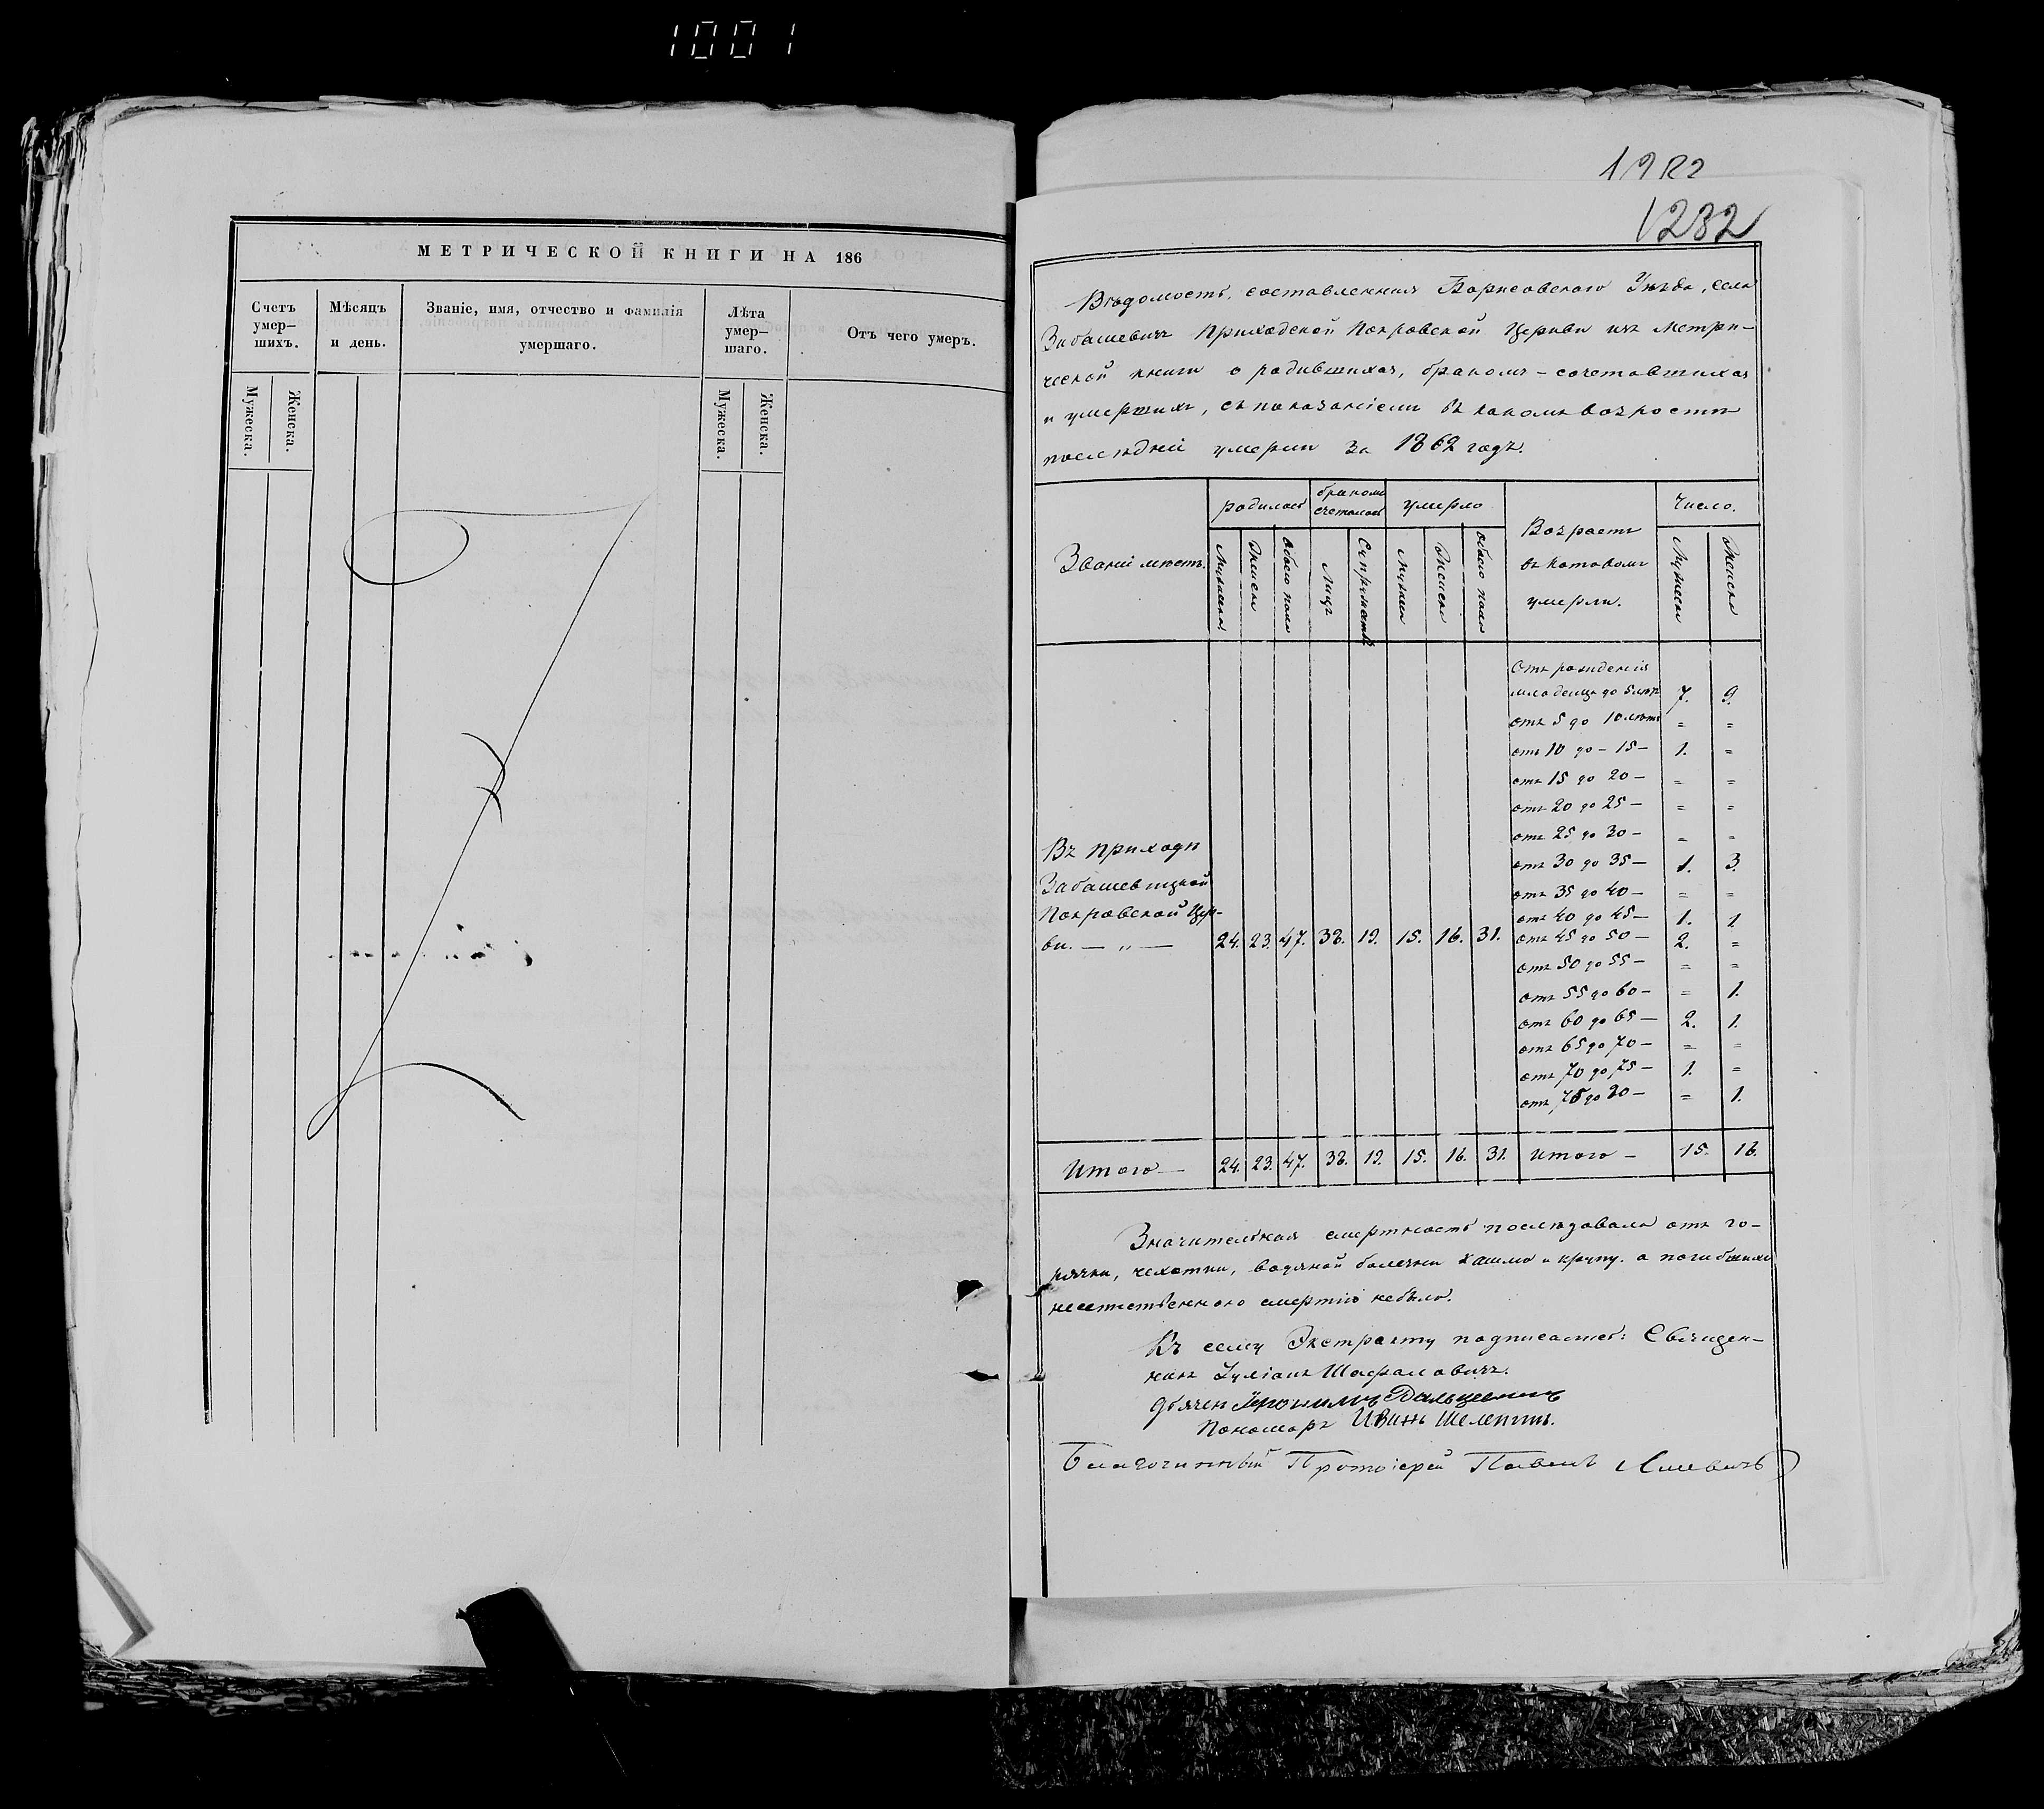 1001
МЕТРИЧЕСКОЙ КНИГИ НА 186
Счетъ умер-шихъ.
Мѣсяцъ и день.
Званіе, имя, отчество и фамилія умершаго.
Лѣта умер-шаго.
Отъ чего умеръ.
Мужеска.
Женска.
Мужеска.
Женска.
1232
Вѣдомость, составленная Борисовскаго Уѣзда, села
Забашевичъ Приходской Покровской Церкви изъ метри-
ческой книги о родившихся, бракомъ-сочетавшихся
и умершихъ, съ показаніемъ въ какомъ возрастѣ
послѣдніи умерли за 1862 годъ.
Званіи мѣстъ.
родилось
бракомъ счеталось
умерло
Возрастъ въ котовомъ умерли.
Число.
Мужеска
Женска
Обоего пола
Лицъ
Супружествъ
Мужеска
Женска
Обоего пола
Мужеска
Женска
Отъ рожденія
младенца до 5 лѣтъ 7. 9.
отъ 5 до 10 лѣтъ = =
отъ 10 до - 15 - 1. =
отъ 15 до 20 - = =
отъ 20 до 25 - = =
отъ 25 до 30 - = =
отъ 30 до 35 - 1. 3.
отъ 35 до 40 - = =
отъ 40 до 45 - 1. 1.
отъ 45 до 50 - 2. =
отъ 50 до 55 - = =
отъ 55 до 60 - = 1.
отъ 60 до 65 - 2. 1.
отъ 65 до 70 - = =
отъ 70 до 75 - 1. =
отъ 75 до 80 - = 1.
Въ приходѣ
Забашевицкой
Покровской Цер-
кви. — „ — 24. 23. 47. 38. 19. 15. 16. 31.
Итого — 24. 23. 47. 38. 19. 15. 16. 31. Итого - 15. 16.
Значительная смертность послѣдовала отъ го-
рячки, чехотки, водяной болезни кашлю и крупу. а погибшихъ
неестественною смертію небыло.
Къ сему Экстракту подписались: Священ-
никъ Іуліанъ Шафаловичъ.
Дьячекъ
Пономарь Иванъ Шелепинъ.
Благочинный Протоіерей Павелъ